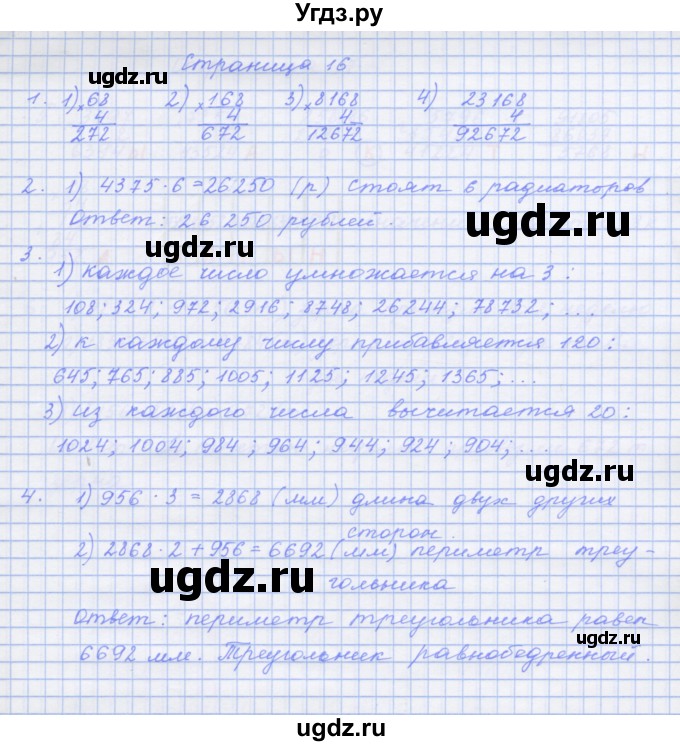 Угдз.ру
Страница 16
1. 1) ×68 2) ×168 3) ×8168 4) 23168
4 4 4 4
272 672 12672 92672
2. 1) 4375·6=26250 (р) стоят 6 радиаторов.
Ответ: 26 250 рублей.
3.
1) каждое число умножается на 3:
108; 324; 972; 2916; 8748; 26244; 78732; ...
2) к каждому числу прибавляется 120:
645; 765; 885; 1005; 1125; 1245; 1365; ...
3) из каждого числа вычитается 20:
1024; 1004; 984; 964; 944; 924; 904; ...
4. 1) 956·3=2868 (мм) длина двух других
сторон.
2) 2868·2+956=6692 (мм) периметр треу-
гольника
Ответ: периметр треугольника равен
6692 мм. Треугольник равнобедренный.
ugdz.ru
ugdz.ru
ugdz.ru
ugdz.ru
ugdz.ru
ugdz.ru
ugdz.ru
ugdz.ru
ugdz.ru